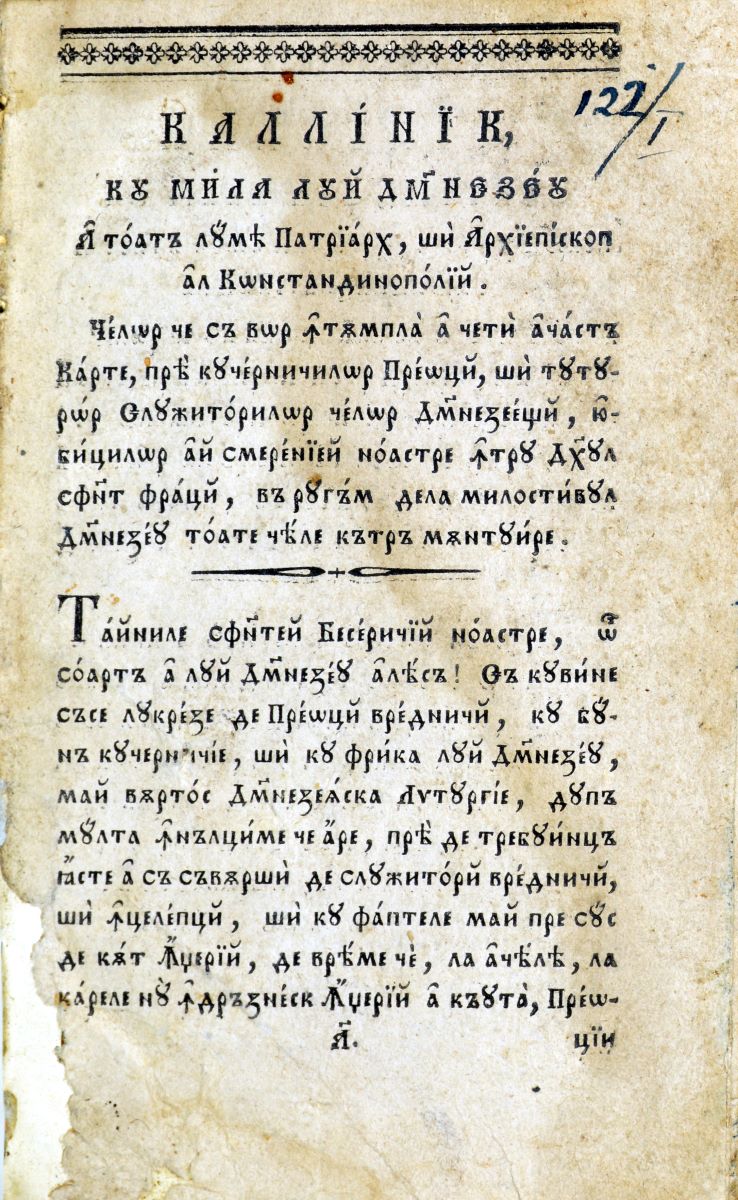 КАЛЛІ́НЇК,
КꙊ МИ́ЛА ЛꙊЙ ДМ҃НЕЗЕ́Ꙋ
А҆ то́атъ лꙋ́мѣ Патрїа́рх, шѝ А҆рхїепі́скоп
а҆л Кѡнстандинопо́лїй.
Че́лѡр че съ вѡр ꙟ҆тѫмплà а҆ четѝ а҆ча́стъ
Ка́рте, прѣ̀ кꙋче́рничилѡр Прео́ѡцй, шѝ тꙋтꙋ-
рѡ́р Слꙋжито́рилѡр че́лѡр Дм҃незее́щй, ю҆-
би́цилѡр а҆й смере́нїей но́астре ꙟ҆трꙋ Дх҃ꙋл
сфн҃т фра́цй, въ рꙋгъ́м дела милости́вꙋл
Дм҃незе́ꙋ то́ате чѣ́ле кътръ мѫнтꙋи́ре.
Та́йниле сфн҃тей Бесе́ричїй но́астре, ѽ
со́артъ а҆ лꙋй Дм҃незе́ꙋ а҆лѣ́съ! Съ кꙋвине
съсе лꙋкре́зе де Прео́ѡцй вре́дничй, кꙋ бꙋ́-
нъ кꙋчерничі́е, шѝ кꙋ фри́ка лꙋй Дм҃незе́ꙋ,
май вѫрто́с Дм҃незеѧ́ска Лѵтꙋргі́е, дꙋпъ
мꙋ́лта ꙟ҆нълци́ме че а҆́ре, прѣ̀ де требꙋи́нцъ
ꙗ҆́сте а҆ съ съвѫршѝ де слꙋжито́рй вре́дничй,
шѝ ꙟ҆целе́пцй, шѝ кꙋ фа́птеле май пре сꙋ́с
де кѫт Ꙟ҆́џерїй, де врѣ́ме чѐ, ла а҆чѣ́лѣ, ла
ка́реле нꙋ̀ ꙟ҆дръзне́ск Ꙟ҆́џерїй а҆ къꙋтà, Прео́ѡ-
А҃. цїи
122/I